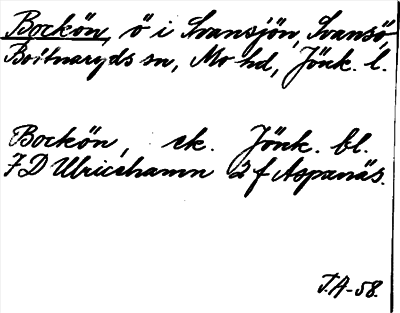 Bockön, ö i Svansjön, Svansö,
Bottnaryds sn, Mo hd, Jönk. l.
Bockön, ek. Jönk. bl.
7D Ulricehamn 2f Aspanäs.
T.A-58.